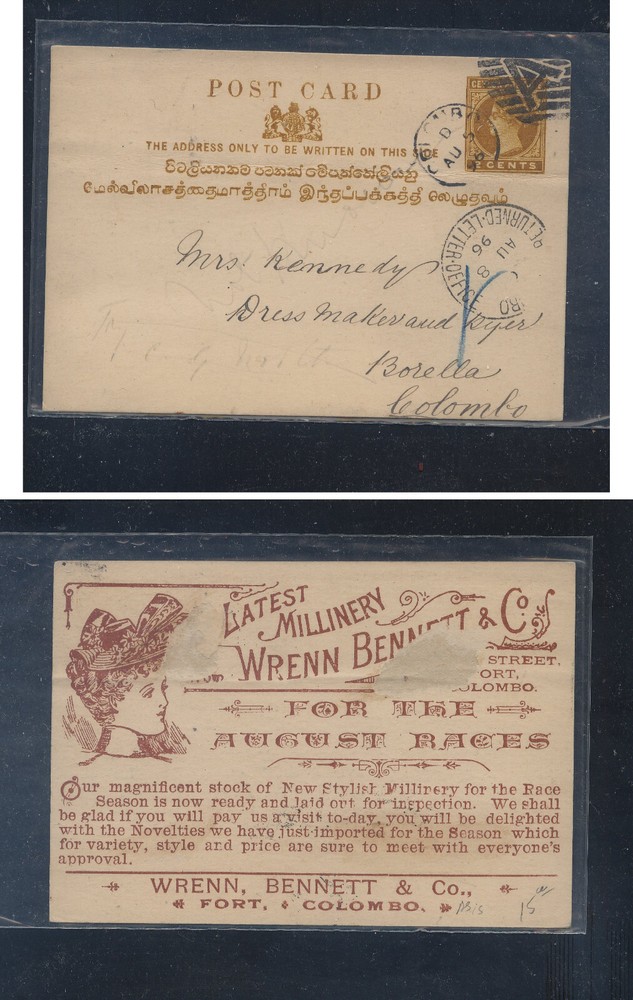 POST CARD
THE ADDRESS ONLY TO BE WRITTEN ON THIS SIDE
විටලියනකම පටනක් මෙපැත්තේලියනු
மேல்விலாசத்தைமாத்திரம் இந்தப்பக்கத்தி லெழுதவும்
2 CENTS
COLOMBO
D
AU 5
96
RETURNED-LETTER-OFFICE
AU 8
96
Mrs. Kennedy
Dress Maker and Dyer
Borella
Colombo
LATEST
MILLINERY
WRENN BENNETT & Co.
STREET,
ORT,
COLOMBO.
FOR THE
AUGUST RACES
Our magnificent stock of New Stylish Millinery for the Race
Season is now ready and laid out for inspection. We shall
be glad if you will pay us a visit to-day, you will be delighted
with the Novelties we have just imported for the Season which
for variety, style and price are sure to meet with everyone's
approval.
WRENN, BENNETT & Co.,
FORT, COLOMBO.
15